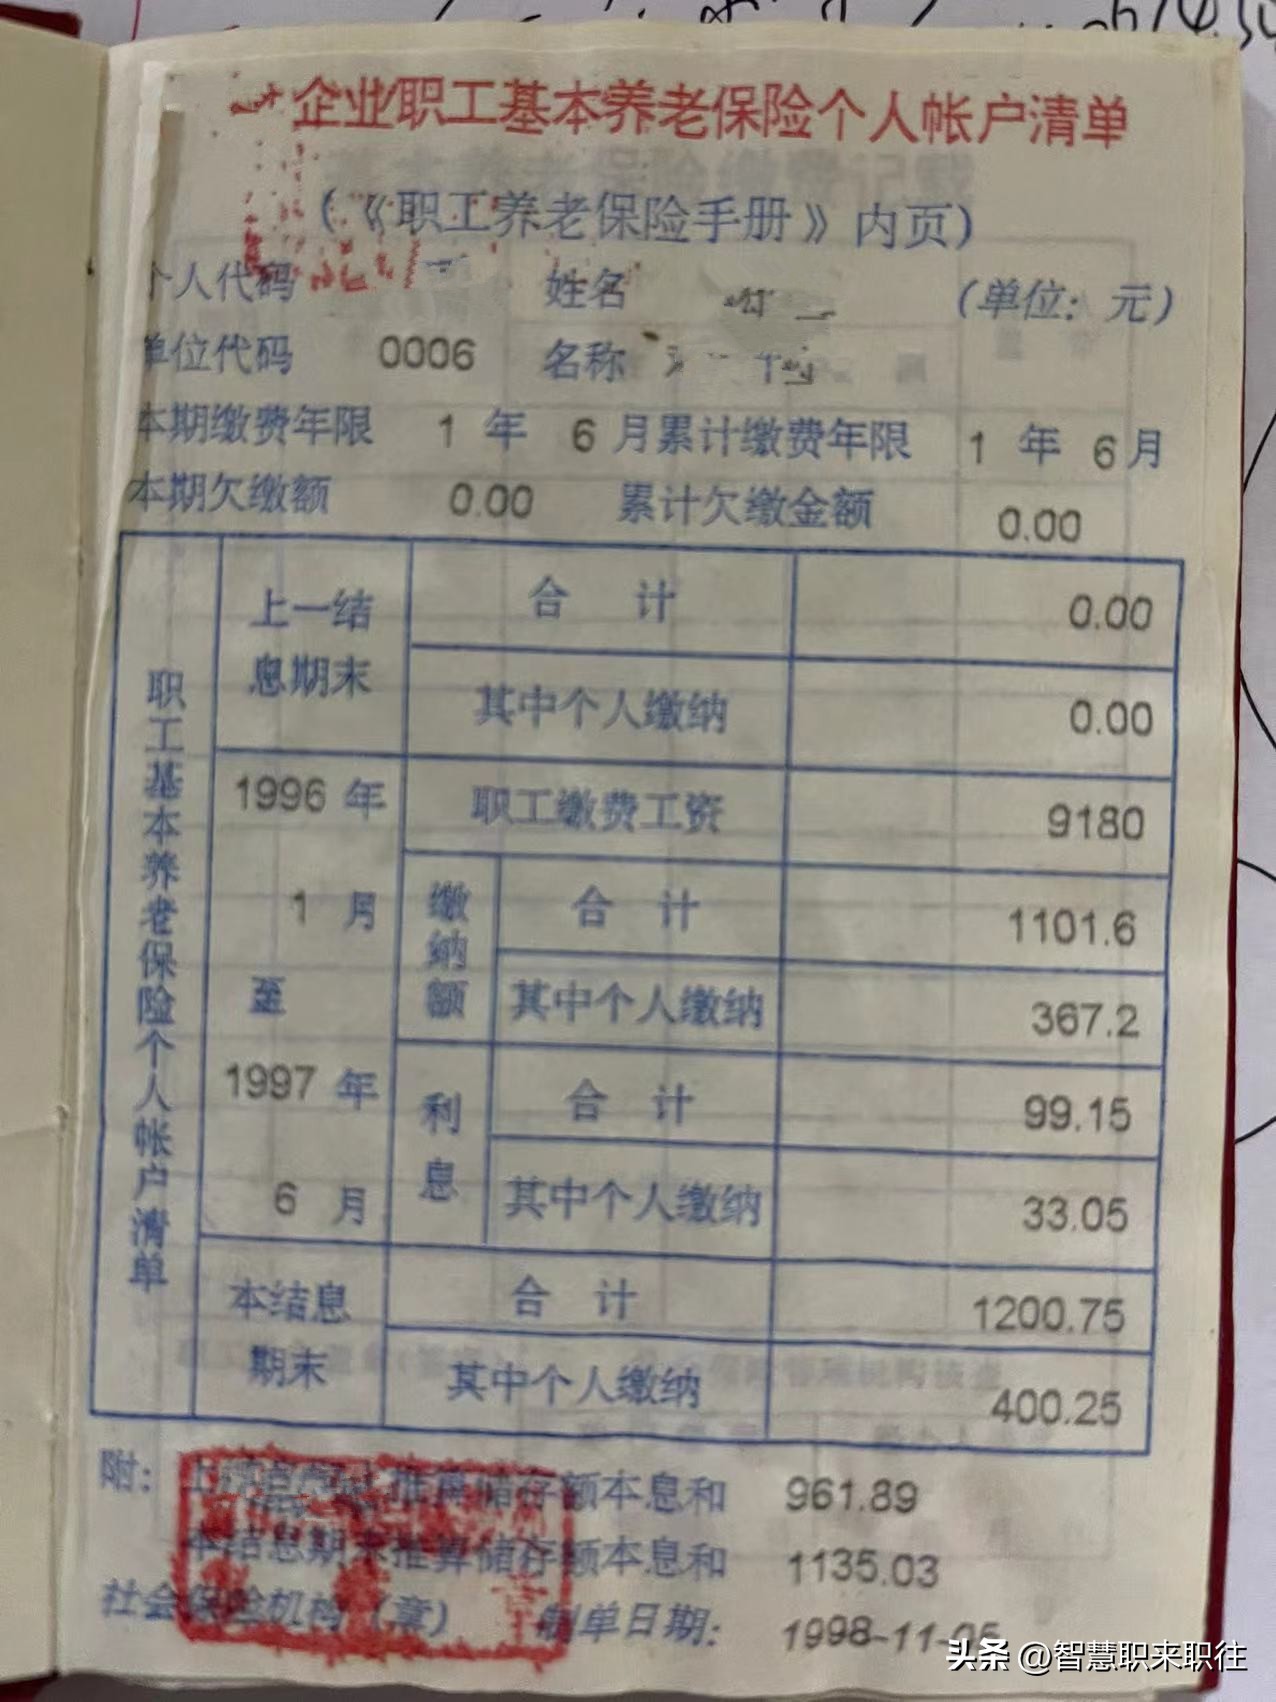 企业职工基本养老保险个人帐户清单
(《职工养老保险手册》内页)
个人代码 姓名 (单位:元)
单位代码 0006 名称
本期缴费年限 1 年 6 月累计缴费年限 1 年 6 月
本期欠缴额 0.00 累计欠缴金额 0.00
职工基本养老保险个人帐户清单
上一结息期末 合计 0.00
其中个人缴纳 0.00
1996 年 1 月至 1997 年 6 月
职工缴费工资 9180
缴纳额 合计 1101.6
其中个人缴纳 367.2
利息 合计 99.15
其中个人缴纳 33.05
本结息期末 合计 1200.75
其中个人缴纳 400.25
附: 上结息期末推算储存额本息和 961.89
本结息期末推算储存额本息和 1135.03
社会保险机构(章) 制单日期: 1998-11-05
头条 @智慧职来职往